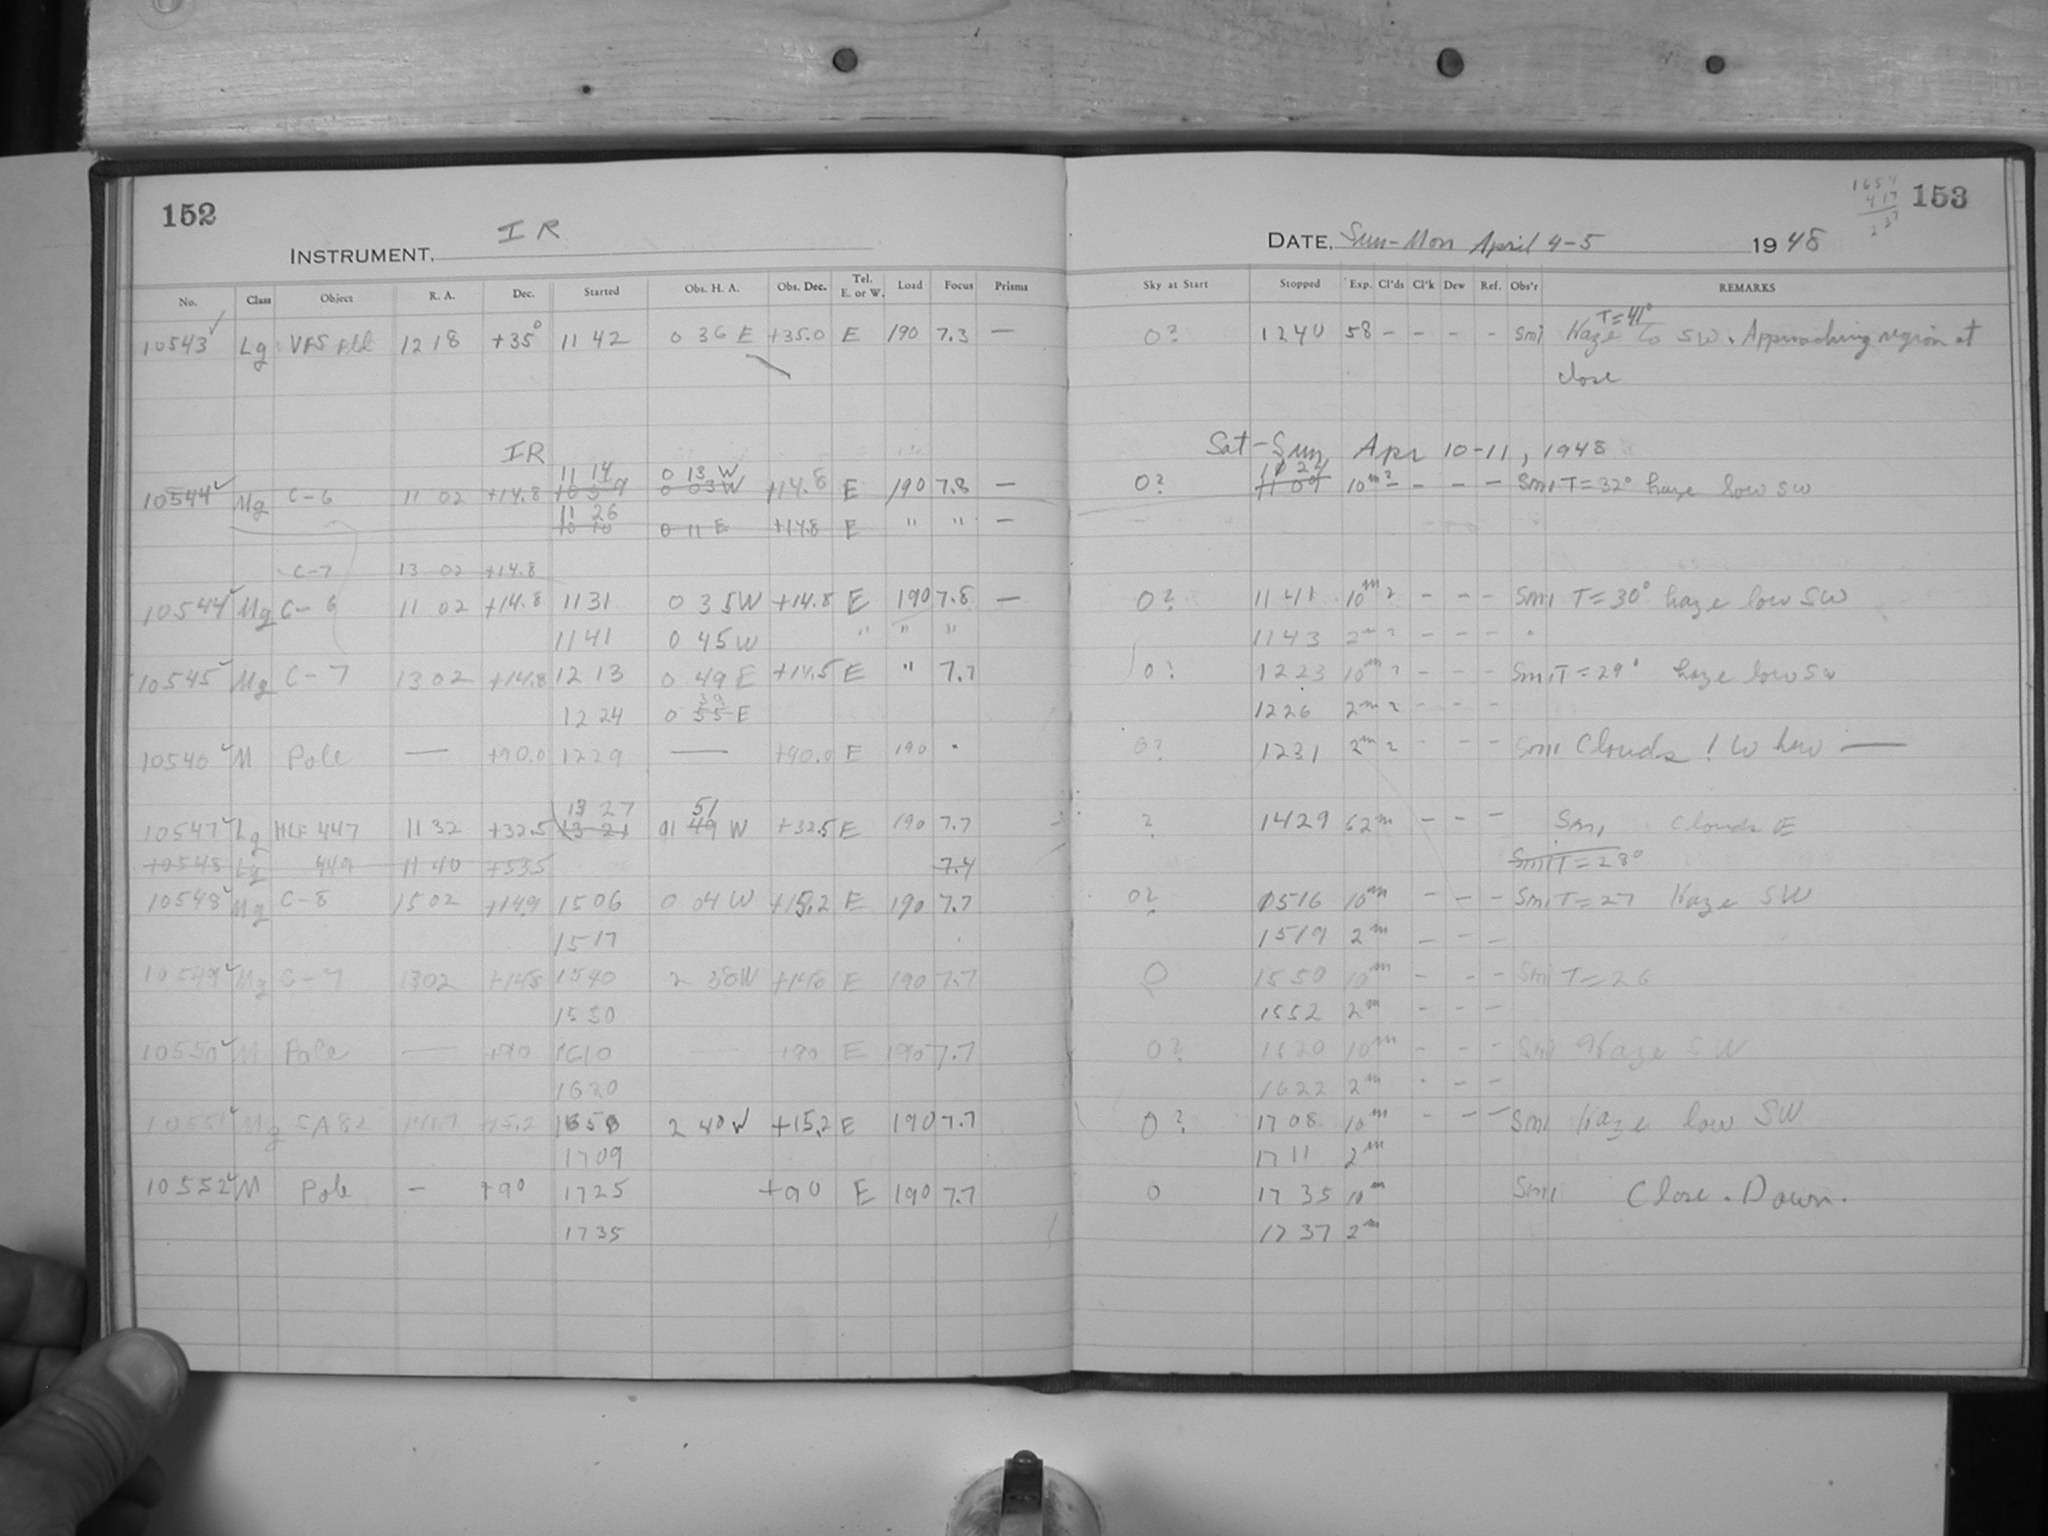 152
INSTRUMENT, IR
No. Class Object R. A. Dec. Started Obs. H. A. Obs. Dec. Tel. E. or W. Load Focus Prisms
10543 ✓ Lg VFS fld 12 18 +35° 11 42 0 36 E +35.0 E 190 7.3 —
IR
11 14 0 13 W
10544 ✓ Mg C-6 11 02 +14.8 10 59 0 03 W +14.8 E 190 7.8 —
11 26
10 10 0 11 E +14.8 E " " —
C-7 13 02 +14.8
10544 ✓ Mg C-6 11 02 +14.8 1131 0 35 W +14.8 E 190 7.8 —
1141 0 45 W " " "
10545 ✓ Mg C-7 13 02 +14.8 12 13 0 49 E +14.5 E " 7.7
39
12 24 0 55 E
10546 ✓ M Pole — +90.0 1229 — +90.0 E 190 "
13 27 51
10547 ✓ Lg HLF 447 11 32 +32.5 13 21 01 49 W +32.5 E 190 7.7
10548 Lg 449 11 40 +53.5 7.4
10548 ✓ Mg C-8 15 02 +14.9 1506 0 04 W +15.2 E 190 7.7
1517
10549 ✓ Mg C-7 1302 +14.8 1540 2 38 W +14.8 E 190 7.7
1550
10550 ✓ M Pole — +90 1610 — +90 E 190 7.7
1620
10551 ✓ Mg SA82 1417 +15.2 1658 2 40 W +15.2 E 190 7.7
1709
10552 ✓ M Pole — +90 1725 +90 E 190 7.7
1735
1654
417
237
153
DATE, Sun-Mon April 4-5 1948
Sky at Start Stopped Exp. Cl'ds Cl'k Dew Ref. Obs'r REMARKS
T=41°
0? 1240 58 - - - - Smi Haze to SW. Approaching region at
close
Sat-Sun Apr 10-11, 1948
11 24
0? 11 09 10m ? - - - - Smi T=32° haze low SW
0? 11 41 10m ? - - - Smi T=30° haze low SW
1143 2m ? - - - "
0? 1223 10m ? - - - Smi T=29° haze low SW
1226 2m ? - - -
0? 1231 2m ? - - - Smi Clouds! —
? 1429 62m - - - Smi Clouds E
Smi T=28°
0? 1516 10m - - - Smi T=27 Haze SW
1519 2m - - -
0 1550 10m - - - Smi T=26
1552 2m - - -
0? 1620 10m - - - Smi Haze SW
1622 2m - - -
0? 1708 10m - - - Smi Haze low SW
1711 2m
0 1735 10m Smi Close. Down.
1737 2m